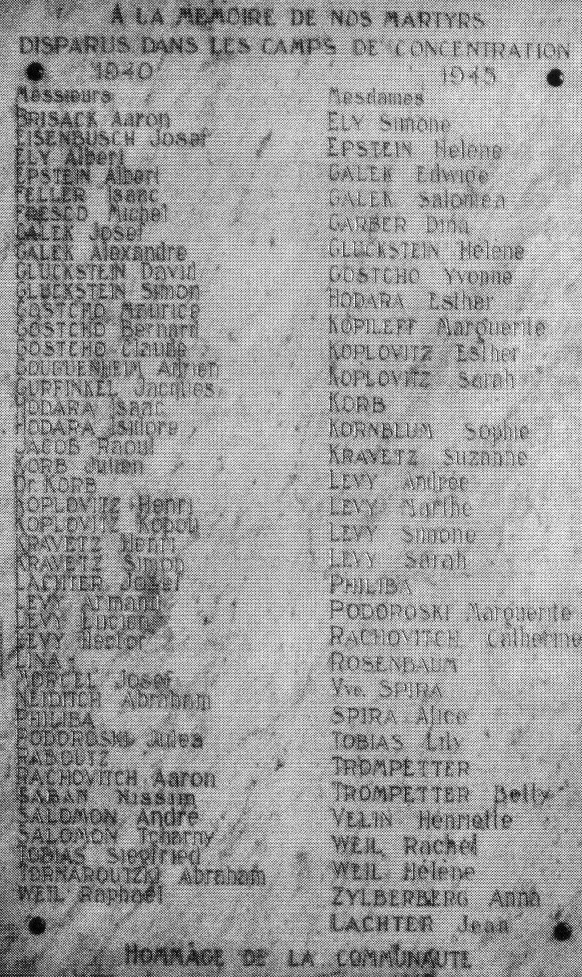 A LA MEMOIRE DE NOS MARTYRS
DISPARUS DANS LES CAMPS DE CONCENTRATION
1940 1945
Messieurs
BRISACK Aaron
EISENBUSCH Josef
ELY Albert
EPSTEIN Albert
FELLER Isaac
FRESCO Michel
GALEK Josef
GALEK Alexandre
GLUCKSTEIN David
GLUCKSTEIN Simon
GOSTCHO Maurice
GOSTCHO Bernard
GOSTCHO Claude
GOUGUENHEIM Adrien
GURFINKEL Jacques
HODARA Isaac
HODARA Isidore
JACOB Raoul
KORB Julien
Dr KORB
KOPLOVITZ Henri
KOPLOVITZ Kopou
KRAVETZ Henri
KRAVETZ Simon
LACHTER Josef
LEVY Armand
LEVY Lucien
LEVY Nestor
LINA
MORCEL Josef
NEIDITCH Abraham
PHILIBA
PODOROSKI Jules
RABOUTZ
RACHOVITCH Aaron
SABAN Nissim
SALOMON André
SALOMON Tcharny
TOBIAS Siegfried
TORNAROUTZKI Abraham
WEIL Raphaël
Mesdames
ELY Simone
EPSTEIN Helene
GALEK Edwige
GALEK Salomea
GARBER Dina
GLUCKSTEIN Helene
GOSTCHO Yvonne
HODARA Esther
KOPILEFF Marguerite
KOPLOVITZ Esther
KOPLOVITZ Sarah
KORB
KORNBLUM Sophie
KRAVETZ Suzanne
LEVY Andrée
LEVY Marthe
LEVY Simone
LEVY Sarah
PHILIBA
PODOROSKI Marguerite
RACHOVITCH Catherine
ROSENBAUM
Vve. SPIRA
SPIRA Alice
TOBIAS Lily
TROMPETTER
TROMPETTER Betty
VELIN Henriette
WEIL Rachel
WEIL Hélène
ZYLBERBERG Anna
LACHTER Jean
HOMMAGE DE LA COMMUNAUTE